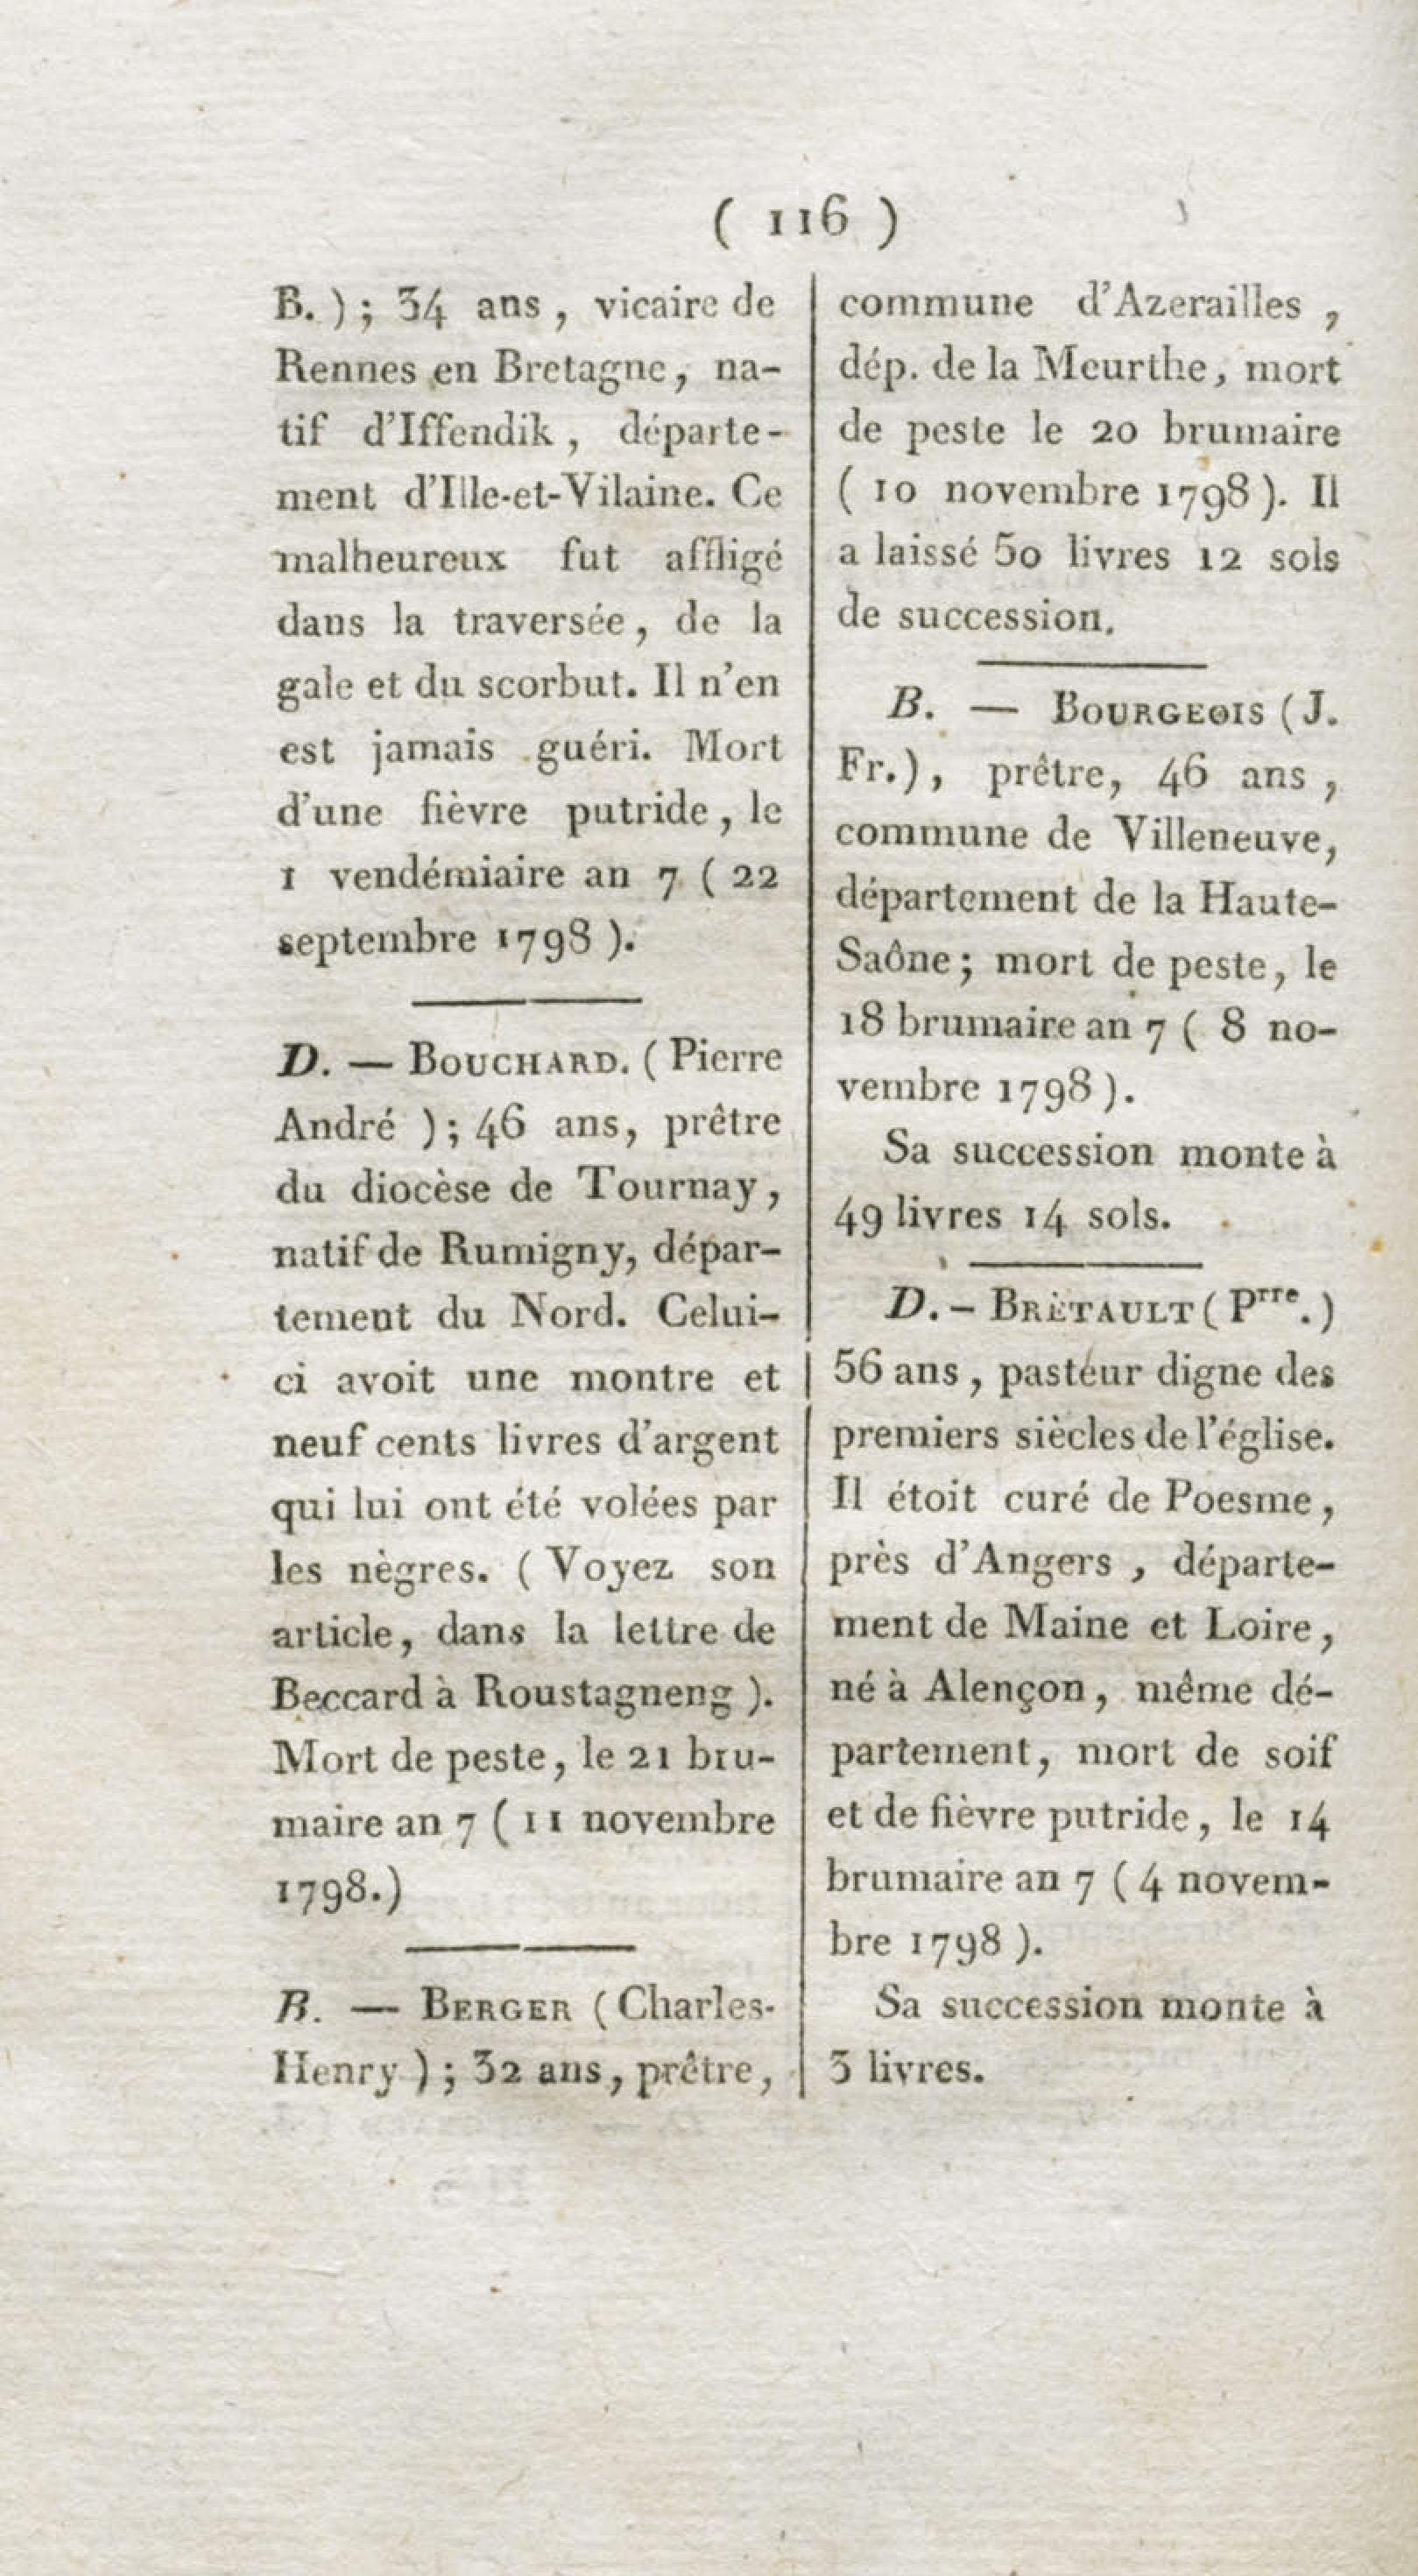 ( 116 )
B. ) ; 34 ans , vicaire de
Rennes en Bretagne, na-
tif d'Iffendik , départe-
ment d'Ille-et-Vilaine. Ce
malheureux fut affligé
dans la traversée, de la
gale et du scorbut. Il n'en
est jamais guéri. Mort
d'une fièvre putride , le
1 vendémiaire an 7 ( 22
septembre 1798 ).
D. — BOUCHARD. ( Pierre
André ) ; 46 ans, prêtre
du diocèse de Tournay,
natif de Rumigny, dépar-
tement du Nord. Celui-
ci avoit une montre et
neuf cents livres d'argent
qui lui ont été volées par
les nègres. ( Voyez son
article, dans la lettre de
Beccard à Roustagneng ).
Mort de peste, le 21 bru-
maire an 7 ( 11 novembre
1798.)
B. — BERGER ( Charles-
Henry ) ; 32 ans, prêtre,
commune d'Azerailles ,
dép. de la Meurthe, mort
de peste le 20 brumaire
( 10 novembre 1798 ). Il
a laissé 50 livres 12 sols
de succession.
B. — BOURGEOIS ( J.
Fr.), prêtre, 46 ans ,
commune de Villeneuve,
département de la Haute-
Saône ; mort de peste, le
18 brumaire an 7 ( 8 no-
vembre 1798 ).
Sa succession monte à
49 livres 14 sols.
D. – BRÈTAULT ( Prre. )
56 ans , pasteur digne des
premiers siècles de l'église.
Il étoit curé de Poesme ,
près d'Angers , départe-
ment de Maine et Loire ,
né à Alençon, même dé-
partement, mort de soif
et de fièvre putride, le 14
brumaire an 7 ( 4 novem-
bre 1798 ).
Sa succession monte à
3 livres.